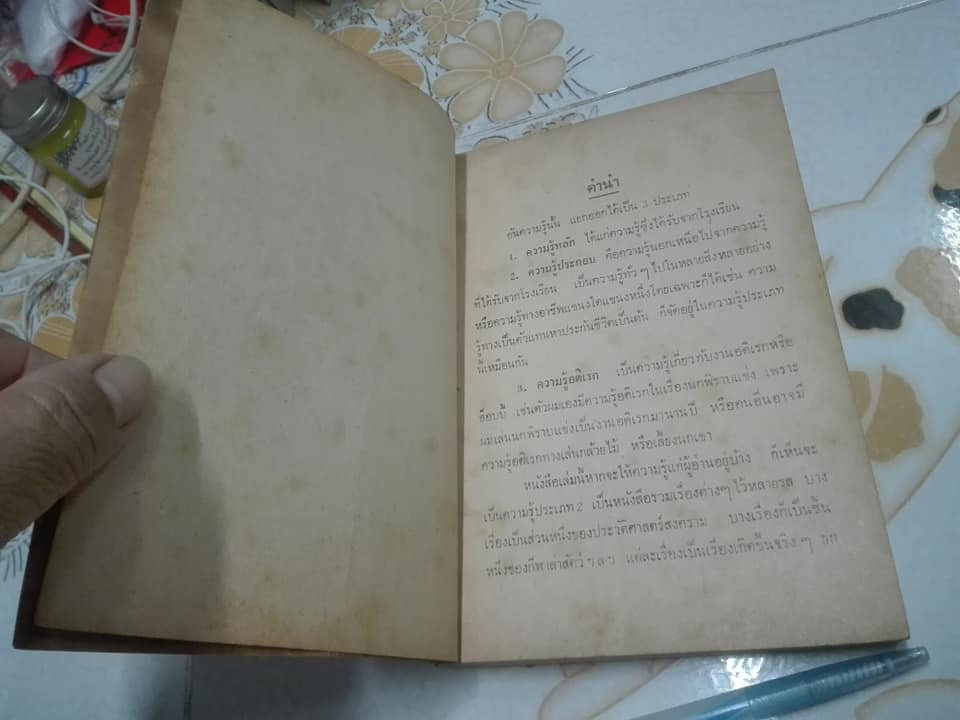 คำนำ
อันความรู้นั้น แยกออกได้เป็น 3 ประเภท
1. ความรู้หลัก ได้แก่ความรู้ซึ่งได้รับจากโรงเรียน
2. ความรู้ประกอบ คือความรู้นอกเหนือไปจากความรู้
ที่ได้รับจากโรงเรียน เป็นความรู้ทั่วๆ ไปในหลายสิ่งหลายอย่าง
หรือความรู้ทางอาชีพแขนงใดแขนงหนึ่งโดยเฉพาะก็ได้เช่น ความ
รู้ทางเป็นตัวแทนหาประกันชีวิตเป็นต้น ก็จัดอยู่ในความรู้ประเภท
นี้เหมือนกัน
3. ความรู้อดิเรก เป็นความรู้เกี่ยวกับงานอดิเรกหรือ
ฮ๊อบบี้ เช่นตัวผมเองมีความรู้อดิเรกในเรื่องนกพิราบแข่ง เพราะ
ผมเล่นนกพิราบแข่งเป็นงานอดิเรกมานานปี หรือคนอื่นอาจมี
ความรู้อดิเรกทางเล่นกล้วยไม้ หรือเลี้ยงนกเขา
หนังสือเล่มนี้หากจะให้ความรู้แก่ผู้อ่านอยู่บ้าง ก็เห็นจะ
เป็นความรู้ประเภท 2 เป็นหนังสือรวมเรื่องต่างๆ ไว้หลายรส บาง
เรื่องเป็นส่วนหนึ่งของประวัติศาสตร์สงคราม บางเรื่องก็เป็นชิ้น
หนึ่งของกีฬาล่าสัตว์ ฯลฯ แต่ละเรื่องเป็นเรื่องเกิดขึ้นจริง ๆ